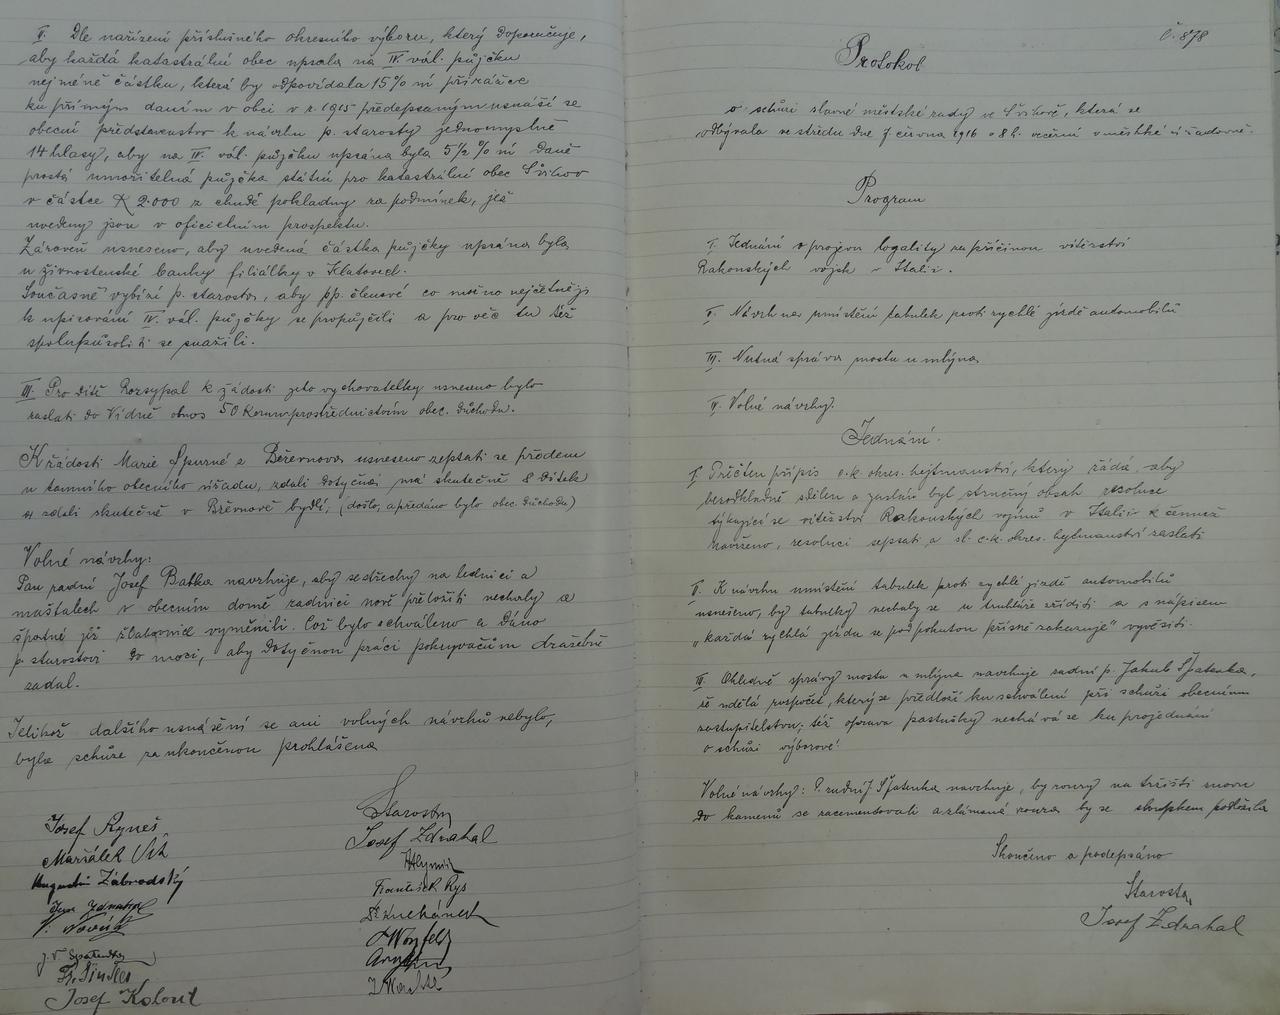 II. Dle nařízení příslušného okresního výboru, který doporučuje,
aby každá katastrální obec upsala na IV. vál. půjčku
nejméně částku, která by odpovídala 15% ní přirážce
ku přímým daním v obci v r. 1915 předepsaným usnáší se
obecní představenstvo k návrhu p. starosty jednomyslně
14 hlasy, aby na IV. vál. půjčku upsána byla 5½% ní daně
prostá umořitelná půjčka státní pro katastrální obec Švihov
v částce K 2.000 z chudé pokladny za podmínek, jež
uvedeny jsou v oficielním prospektu.
Zároveň usneseno, aby uvedená částka půjčky upsána byla
u živnostenské banky filiálky v Klatovech.
Současně vybízí p. starosta, aby pp. členové co možno nejčetněji
k upisování IV. vál. půjčky se propůjčili a pro věc tu též
spolupůsobiti se snažili.
III. Pro dítě Rozsypal k žádosti jeho vychovatelky usneseno bylo
zaslati do Vídně obnos 50 Korun prostřednictvím obec. důchodu.
K žádosti Marie Spurné z Břevnova usneseno zeptati se předem
u tamního obecního úřadu, zdali dotyčná má skutečně 8 dítek
a zdali skutečně v Břevnově bydlí, (došlo, a předáno bylo obec. důchodu)
Volné návrhy:
Pan radní Josef Batka navrhuje, aby se střechy na lednici a
maštalech v obecním domě radnici nově přeložiti nechaly a
špatné již žlabovnice vyměnili. Což bylo schváleno a dáno
p. starostovi do moci, aby dotyčnou práci pokryvačům dražebně
zadal.
Jelikož dalšího usnášení se ani volných návrhů nebylo,
byla schůze za ukončenou prohlášena
Starosta
Josef Ryneš
Josef Zdrahal
Maršálek Vít
Augustin Zábrodský
František Rys
Jan Zdrahal
Dr. Kuchánek
V. Novák
J. V. Spatenka
Fr. Šindler
Josef Kolout
č. 878
Protokol
o schůzi slavné městské rady ve Švihově, která se
odbývala ve středu dne 7 června 1916 o 8 h. večerní v městské úřadovně.
Program
I. Jednání o projevu loyality za příčinou vítězství
Rakouských vojsk v Italii.
II. Návrh na umístění tabulek proti rychlé jízdě automobilů
III. Nutná správa mostu u mlýna
IV. Volné návrhy.
Jednání.
I. Přečten přípis c.k. okres. hejtmanství, který žádá, aby
bezodkladně sdělen a zaslán byl stručný obsah resoluce
týkající se vítězství Rakouských vojínů v Italii k čemuž
navrženo, resoluci sepsati a sl. c.k. okres. hejtmanství zaslati
II. K návrhu umístění tabulek proti rychlé jízdě automobilů
usneseno, by tabulky nechaly se u truhláře zříditi a s nápisem
„každá rychlá jízda se pod pokutou přísně zakazuje" vyvěsiti.
III. Ohledně správy mostu u mlýna navrhuje radní p. Jakub Spatenka,
že udělá rozpočet, který se předloží ku schválení při schůzi obecnímu
zastupitelstvu; též oprava pastušky nechává se ku projednání
o schůzi výborové!
Volné návrhy: P. radní J Spatenka navrhuje, by roury na tržišti znovu
do kamenů se zacementovali a zlámaná roura by se sloupkem podložila
Skončeno a podepsáno
Starosta
Josef Zdrahal